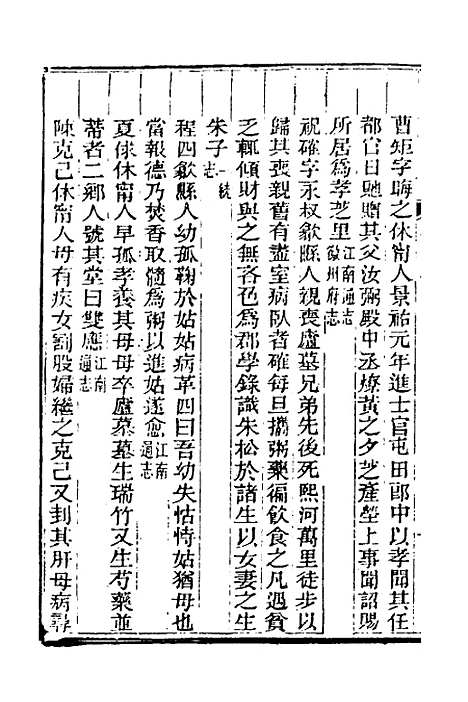 曹矩字誨之休甯人景祐元年進士官屯田郎中以孝聞其任
都官日馳贈其父汝弼殿中丞燎黃之夕芝產塋上事聞詔賜
所居爲孝芝里江南通志徽州府志
祝確字永叔歙縣人親喪廬墓兄弟先後死熙河萬里徒步以
歸其喪親舊有盡室病臥者確每旦攜粥藥徧飮食之凡遇貧
乏輒傾財與之無吝色爲郡學錄識朱松於諸生以女妻之生
朱子一統志
程四歙縣人幼孤鞠於姑姑病革四曰吾幼失怙恃姑猶母也
當報德乃焚香取髓爲粥以進姑遂愈江南通志
夏俅休甯人早孤孝養其母母卒廬墓墓生瑞竹又生芍藥並
蒂者二鄉人號其堂曰雙應江南通志
陳克己休甯人母有疾女割股婦繼之克己又刲其肝母病尋